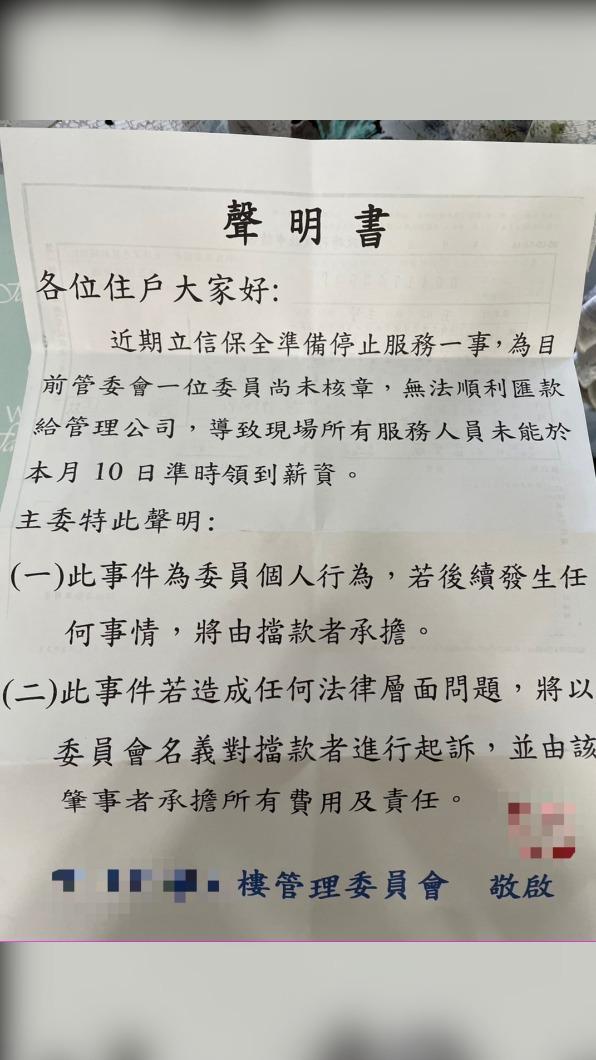 聲明書
各位住戶大家好:
近期立信保全準備停止服務一事,為目
前管委會一位委員尚未核章,無法順利匯款
給管理公司,導致現場所有服務人員未能於
本月 10 日準時領到薪資。
主委特此聲明:
(一)此事件為委員個人行為,若後續發生任
何事情,將由擋款者承擔。
(二)此事件若造成任何法律層面問題,將以
委員會名義對擋款者進行起訴,並由該
肇事者承擔所有費用及責任。
樓管理委員會 敬啟